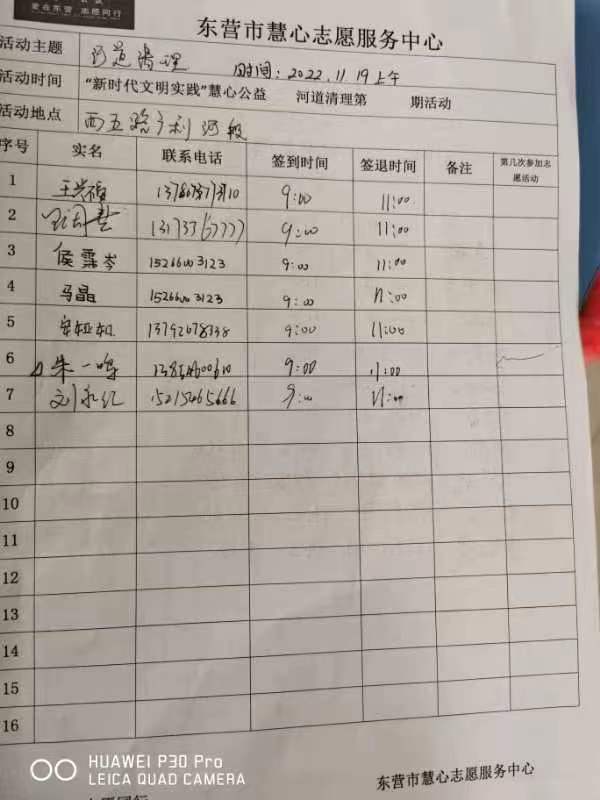 爱在东营 志愿同行
东营市慧心志愿服务中心
活动主题 河道清理 时间：2022.11.19上午
活动时间 “新时代文明实践”慧心公益 河道清理第 期活动
活动地点 西五路 利河
序号 实名 联系电话 签到时间 签退时间 备注 第几次参加志愿活动
1 9:00 11:00
2 9:00 11:00
3 侯霏岑 15266003123 9:00 11:00
4 马晶 15266003123 9:00 11:00
5 13792078738 9:00 11:00
6 朱一鸣 9:00 11:00
7 15215465666 9:00 11:00
8
9
10
11
12
13
14
15
16
东营市慧心志愿服务中心
HUAWEI P30 Pro
LEICA QUAD CAMERA